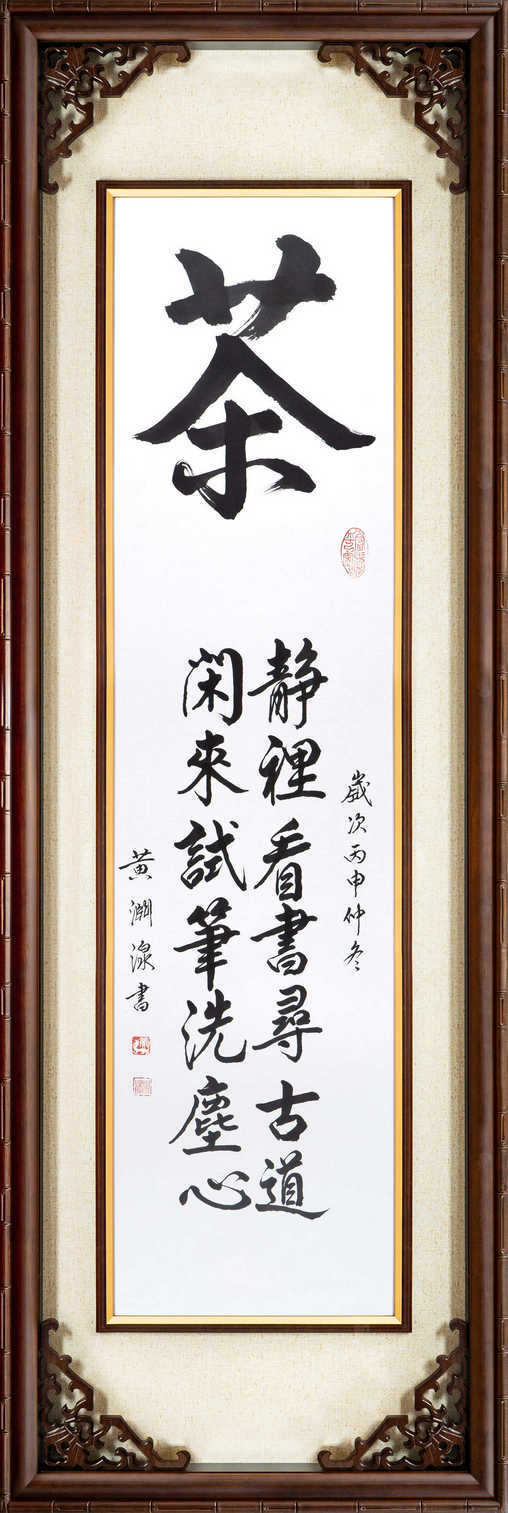 茶
歲次丙申仲冬
靜裡看書尋古道
閑來試筆洗塵心
黃淵湶書